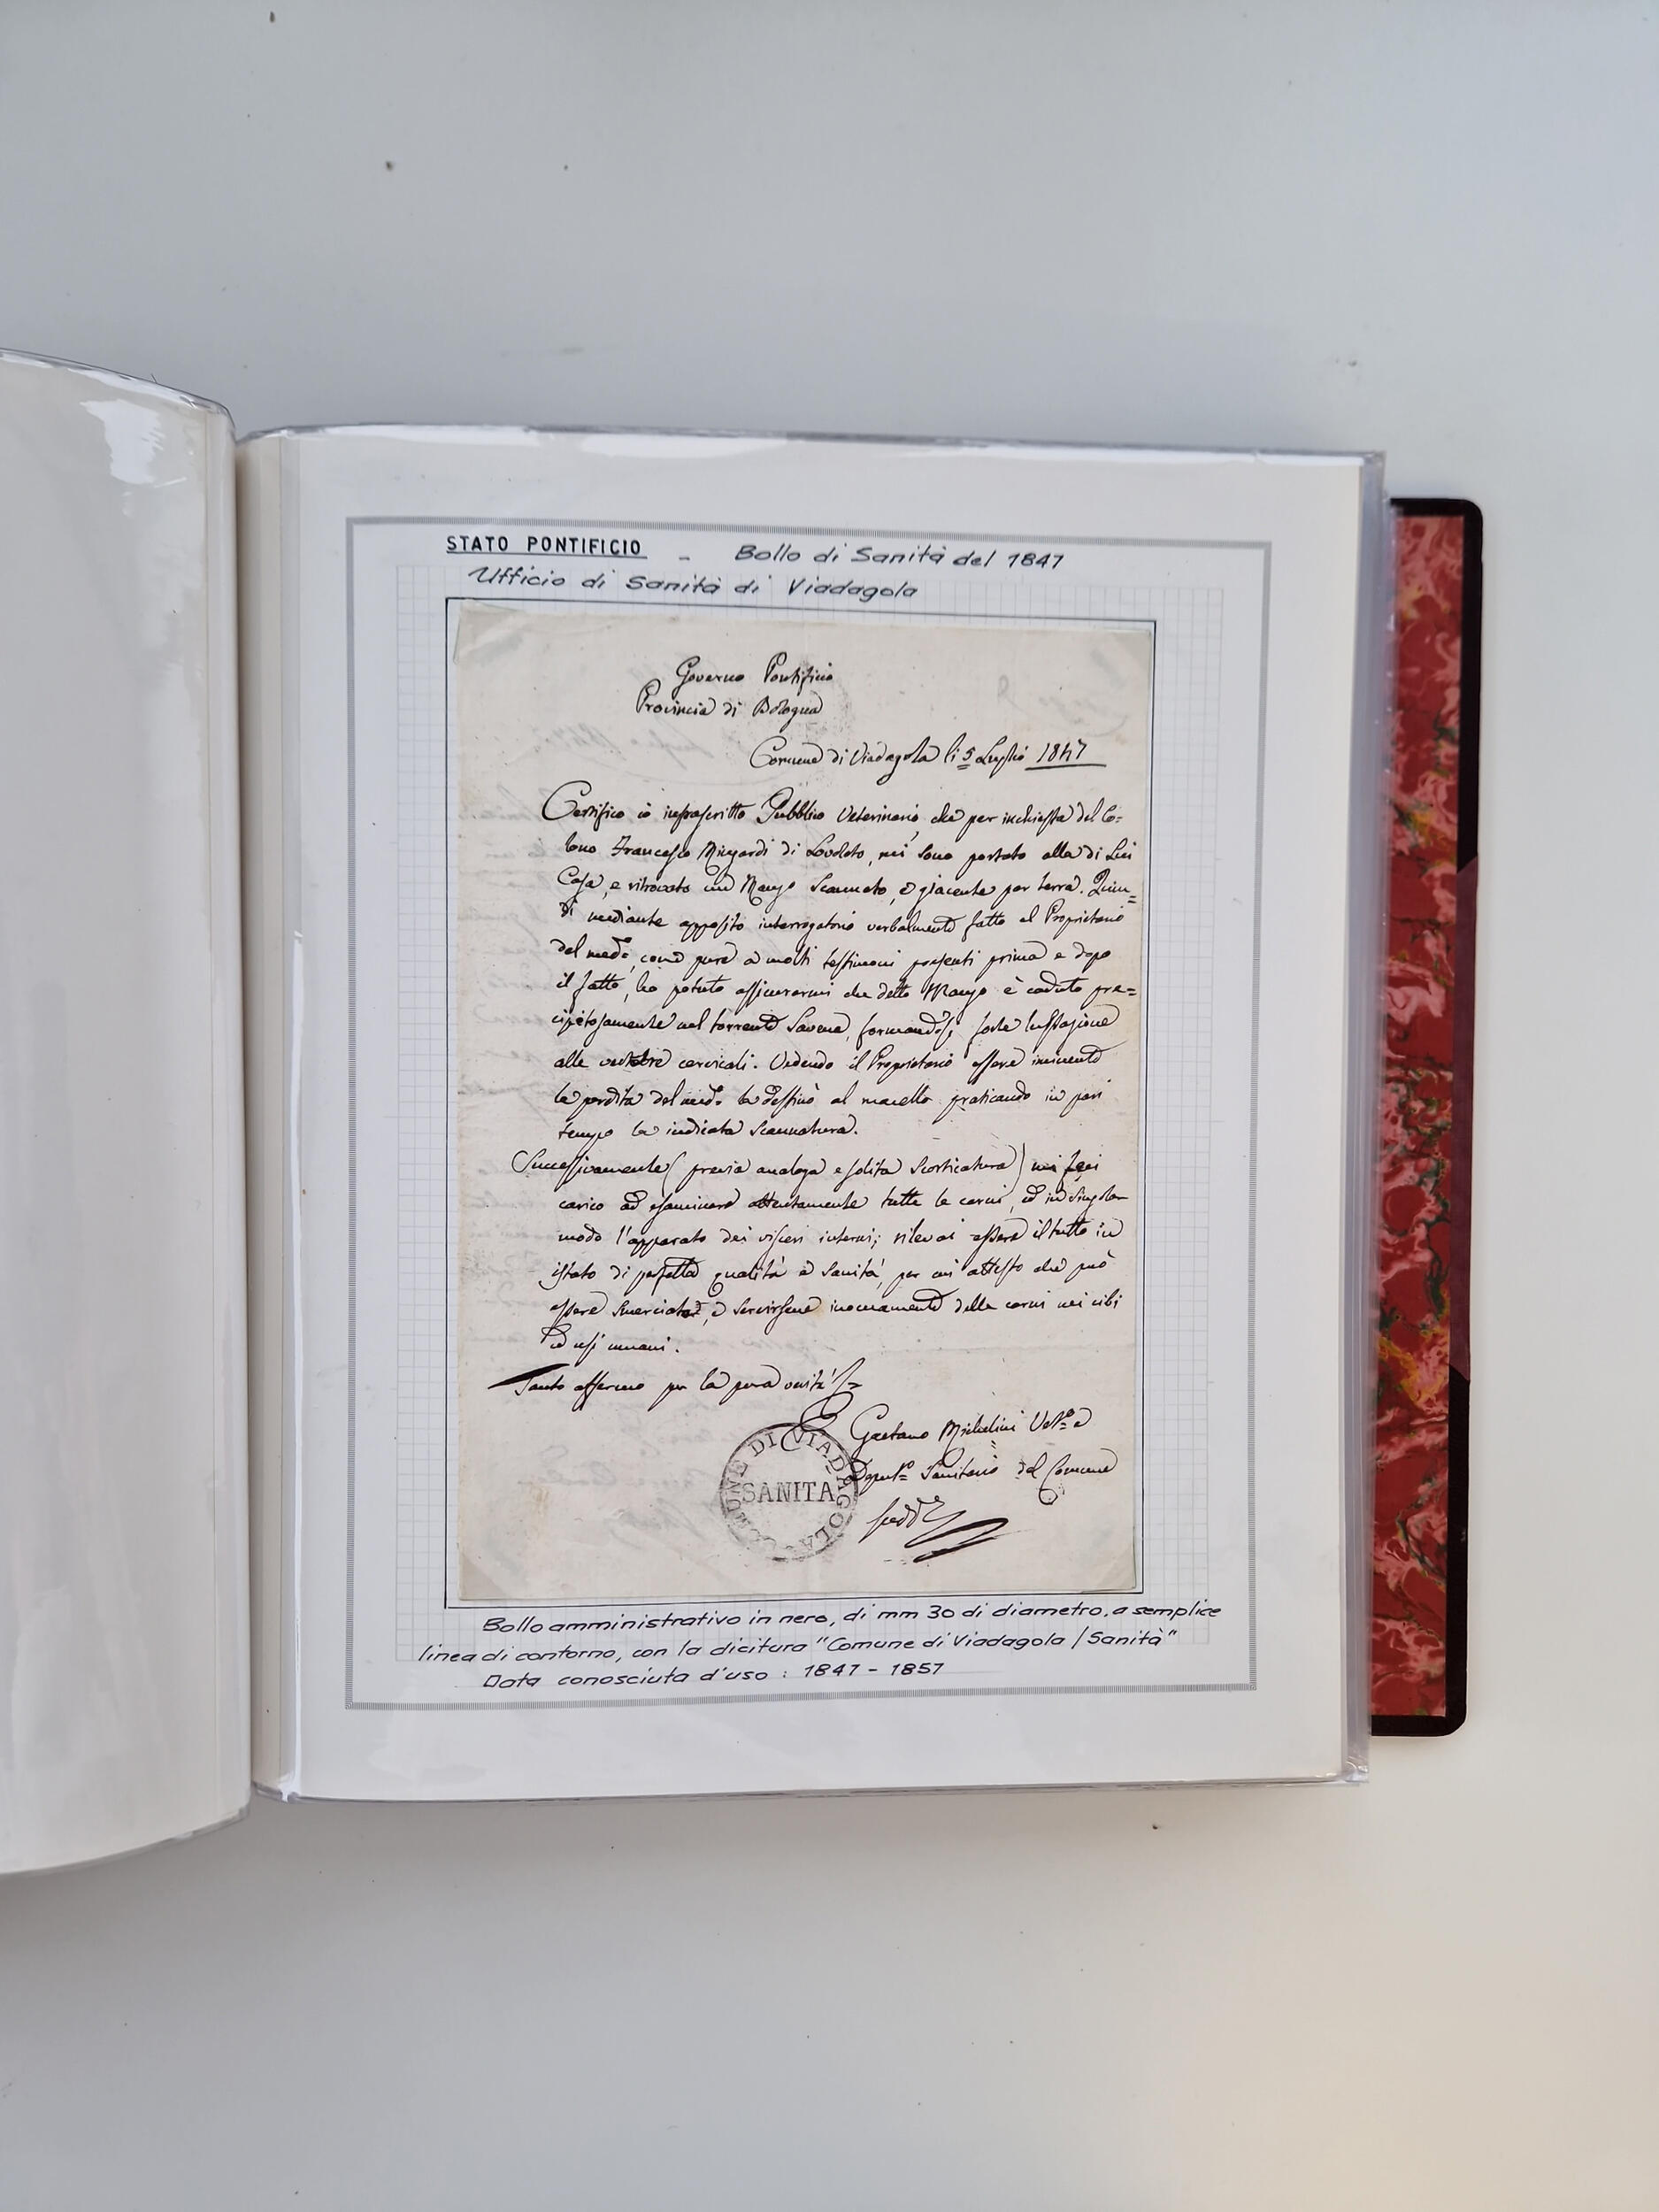 STATO PONTIFICIO - Bollo di Sanità del 1847
Ufficio di Sanità di Viadagola
Governo Pontificio
Provincia di Bologna
Comune di Viadagola li 5 Luglio 1847
Certifico io infrascritto Pubblico Veterinario, che per inchiesta del Co=
lono Francesco Mingardi di Lovoleto, mi sono portato alla di Lui
Casa, e ritrovato un Manzo Scannato, e giacente per terra. Quin=
di mediante apposito interrogatorio verbalmente fatto al Proprietario
del med.o, come pure a molti testimoni presenti prima e dopo
il fatto, ho potuto assicurarmi che detto Manzo è caduto pre=
cipitosamente nel torrente Savena, formandosi forte lussazione
alle vertebre cervicali. Vedendo il Proprietario essere imminente
la perdita del med.o lo destinò al macello praticando in pari
tempo la indicata Scannatura.
Successivamente (previa analoga e solita Scorticatura) mi feci
carico ad esaminare attentamente tutte le carni, ed in singolar
modo l'apparato dei visceri interni; rilevai essere il tutto in
istato di perfetta qualità e Sanità, per cui attesto che può
essere Smerciato, e servirsene innocuamente delle carni nei cibi
ed usi umani.
Tanto affermo per la pura verità
Gaetano Michelini Vet.o e
Deput.o Sanitario del Comune
COMUNE DI VIADAGOLA
SANITÀ
Bollo amministrativo in nero, di mm 30 di diametro, a semplice
linea di contorno, con la dicitura "Comune di Viadagola / Sanità"
Data conosciuta d'uso : 1847 - 1857